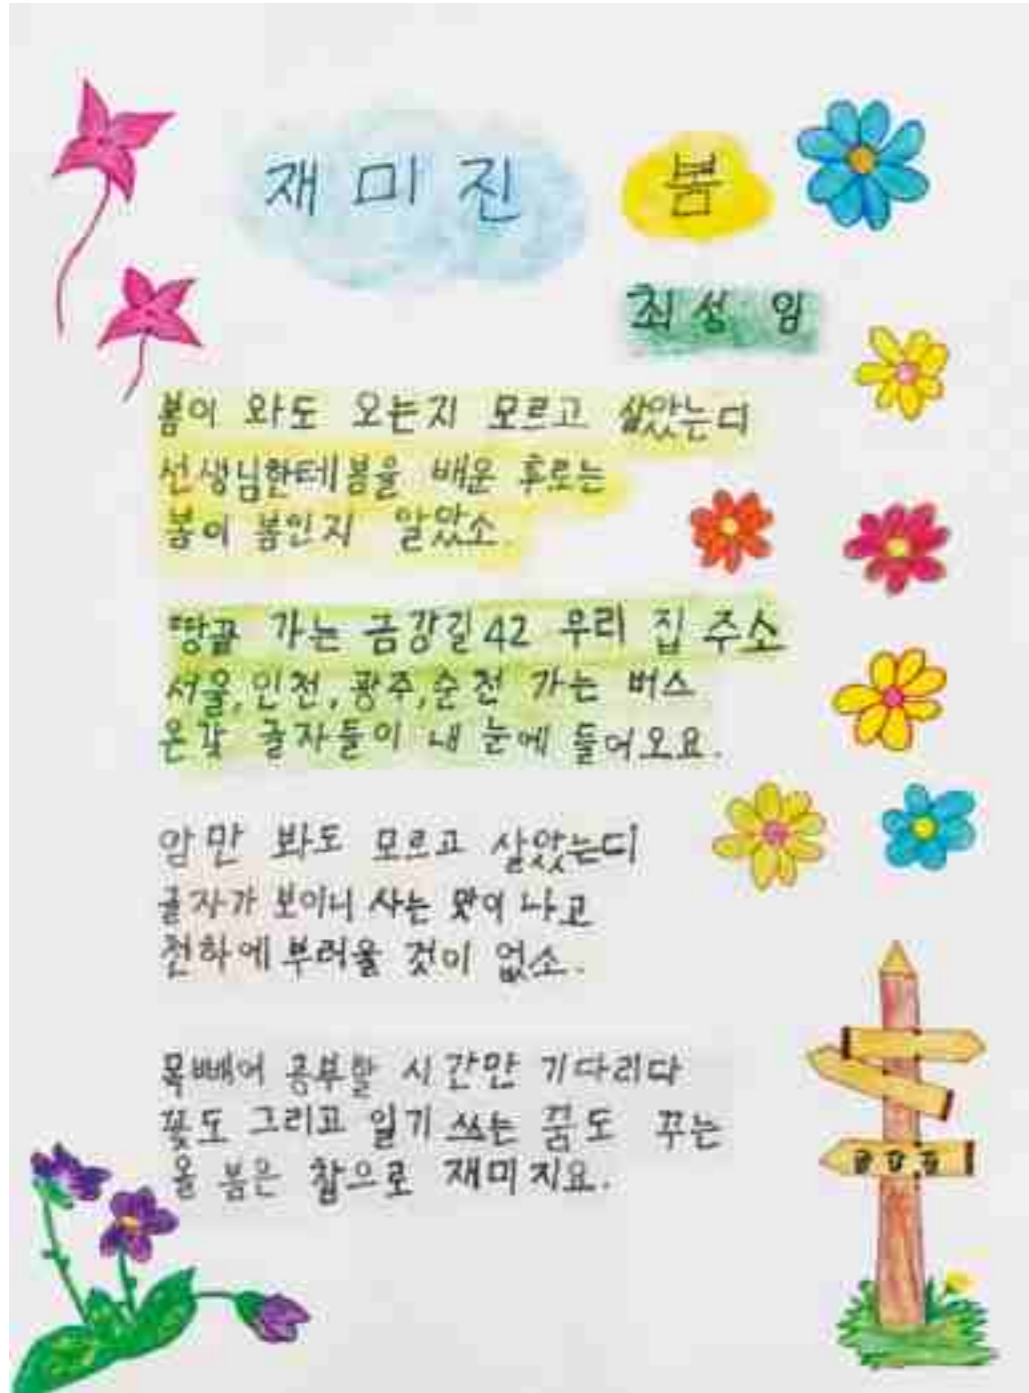 재미진 봄
최성임
봄이 와도 오는지 모르고 살았는디
선생님한테 봄을 배운 후로는
봄이 봄인지 알았소.
땅끝 가는 금강길 42 우리 집 주소
서울, 인천, 광주, 순천 가는 버스
온갖 글자들이 내 눈에 들어오요.
암만 봐도 모르고 살았는디
글자가 보이니 사는 맛이 나고
천하에 부러울 것이 없소.
목빼어 공부할 시간만 기다리다
꽃도 그리고 일기 쓰는 꿈도 꾸는
올 봄은 참으로 재미지요.